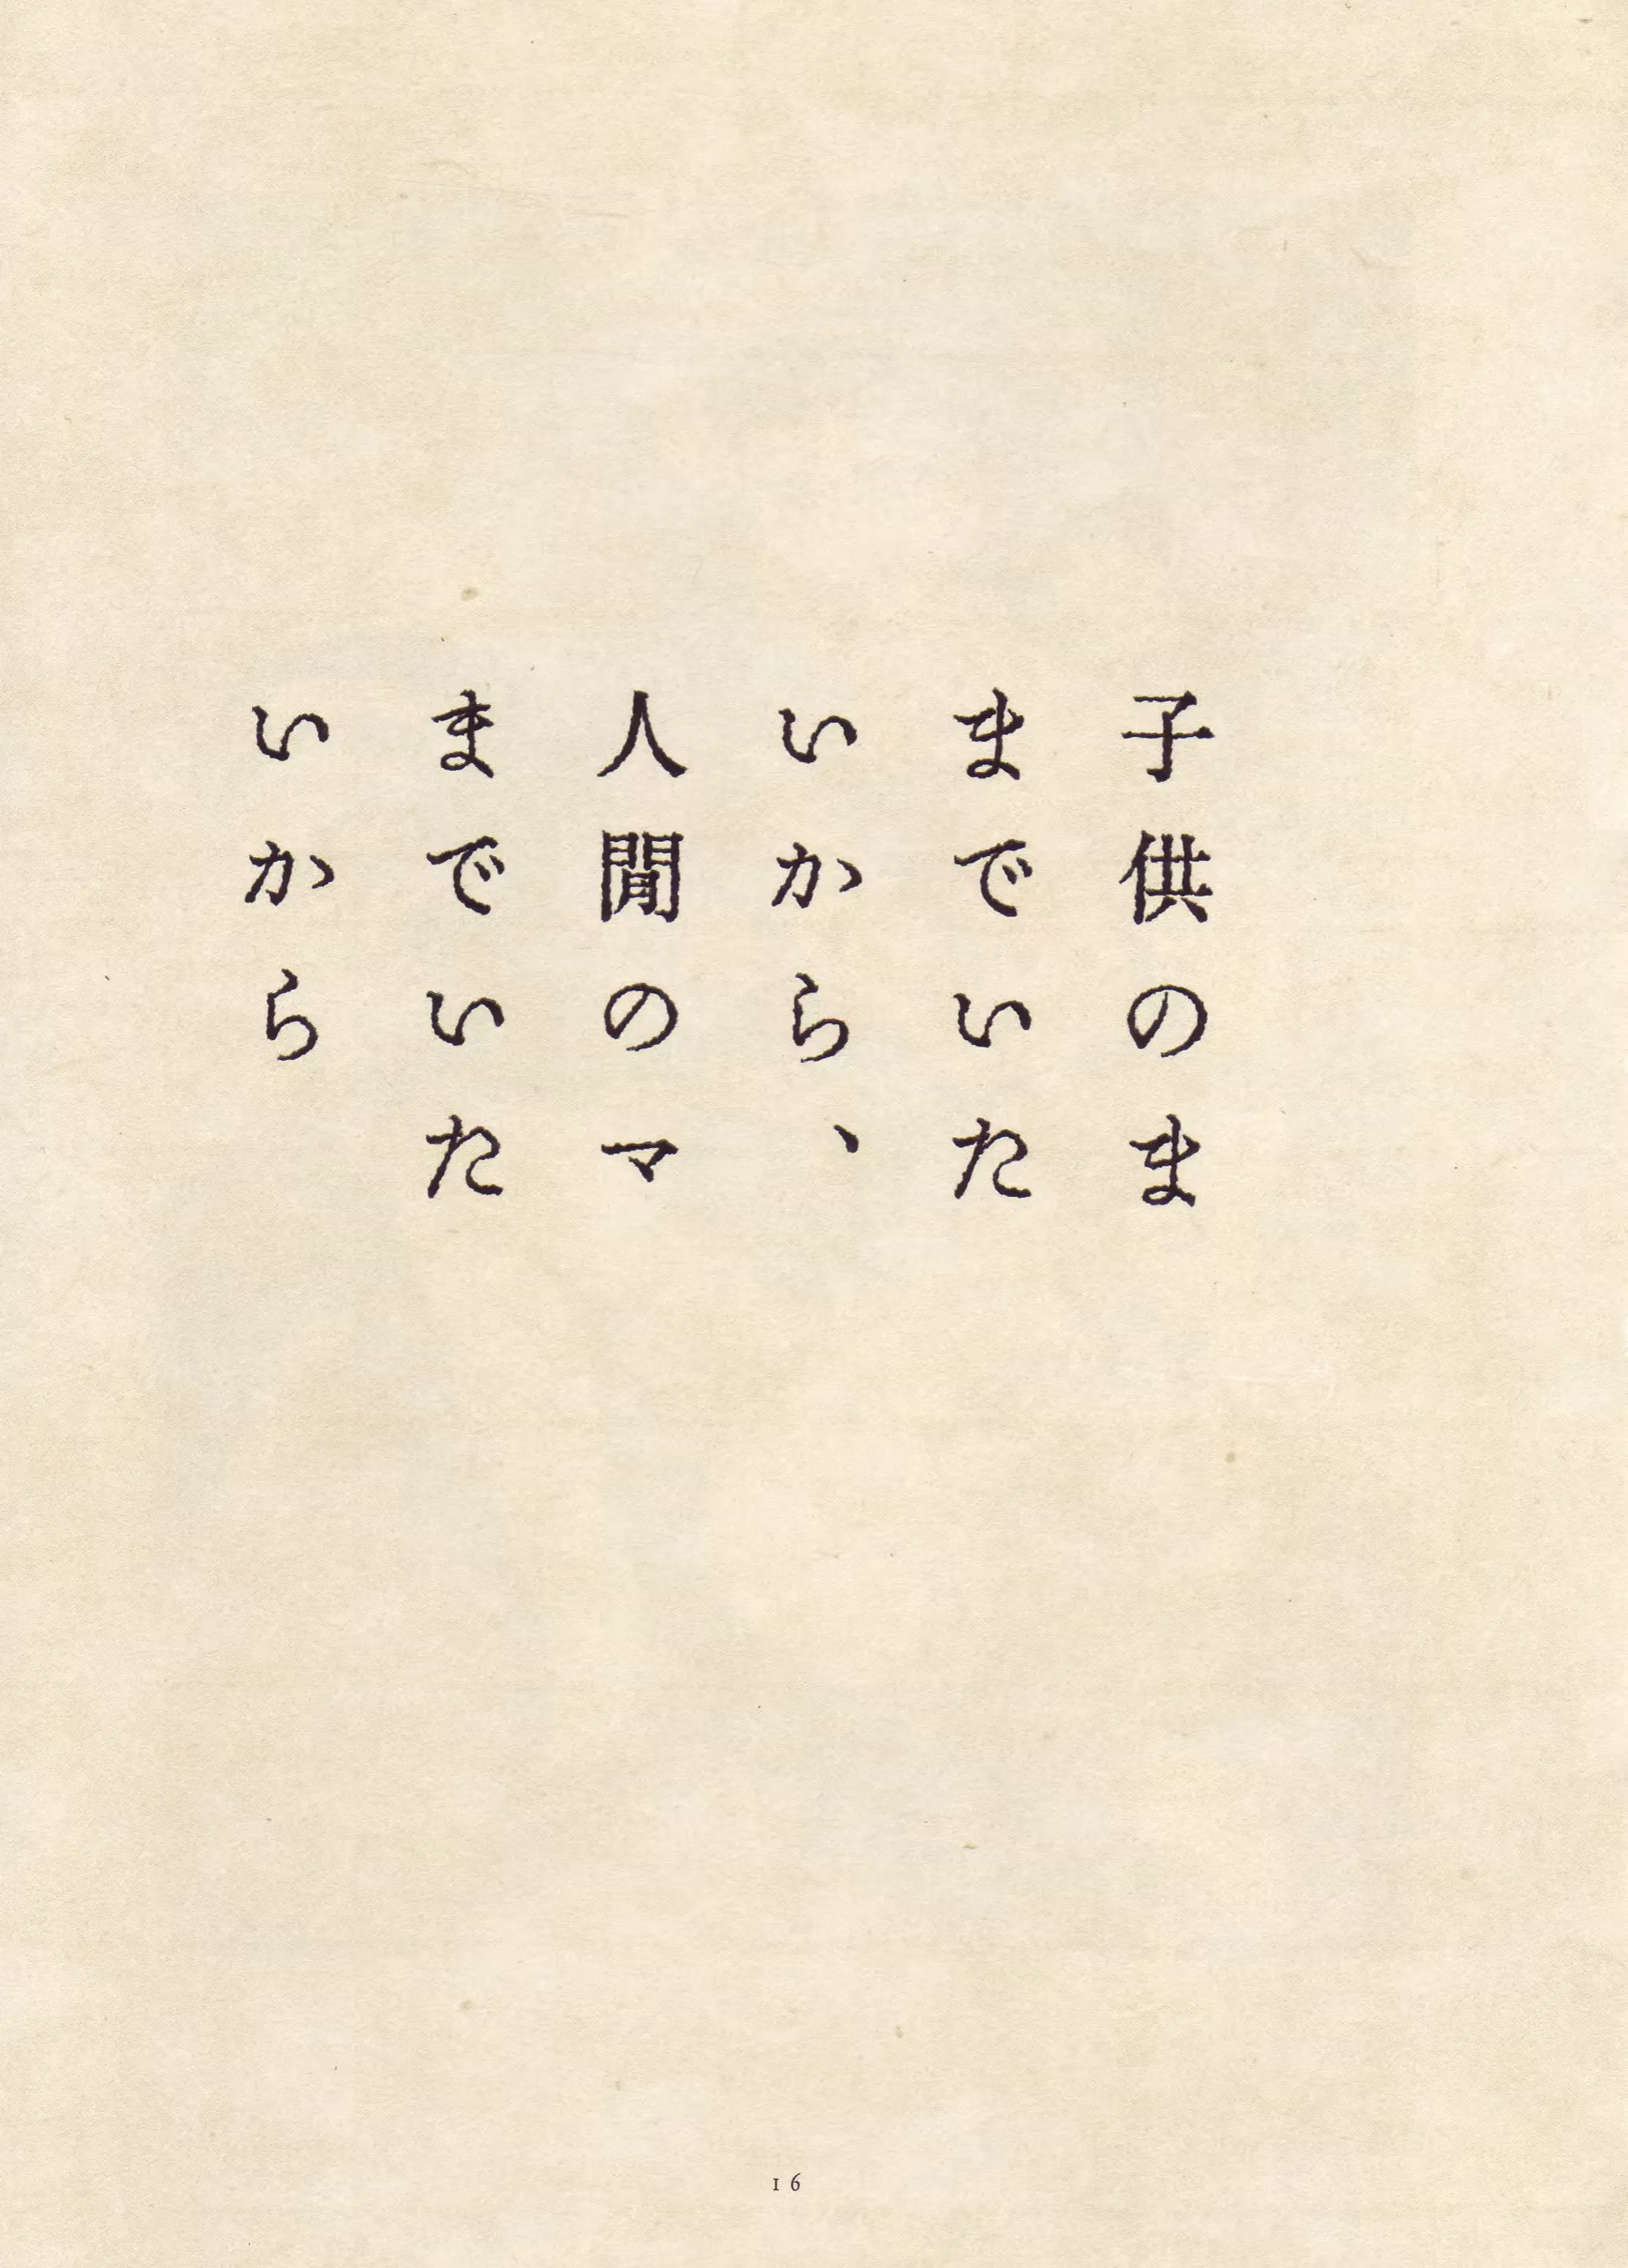 子供のま
までいた
いから、
人閒のマ
までいた
いから
16